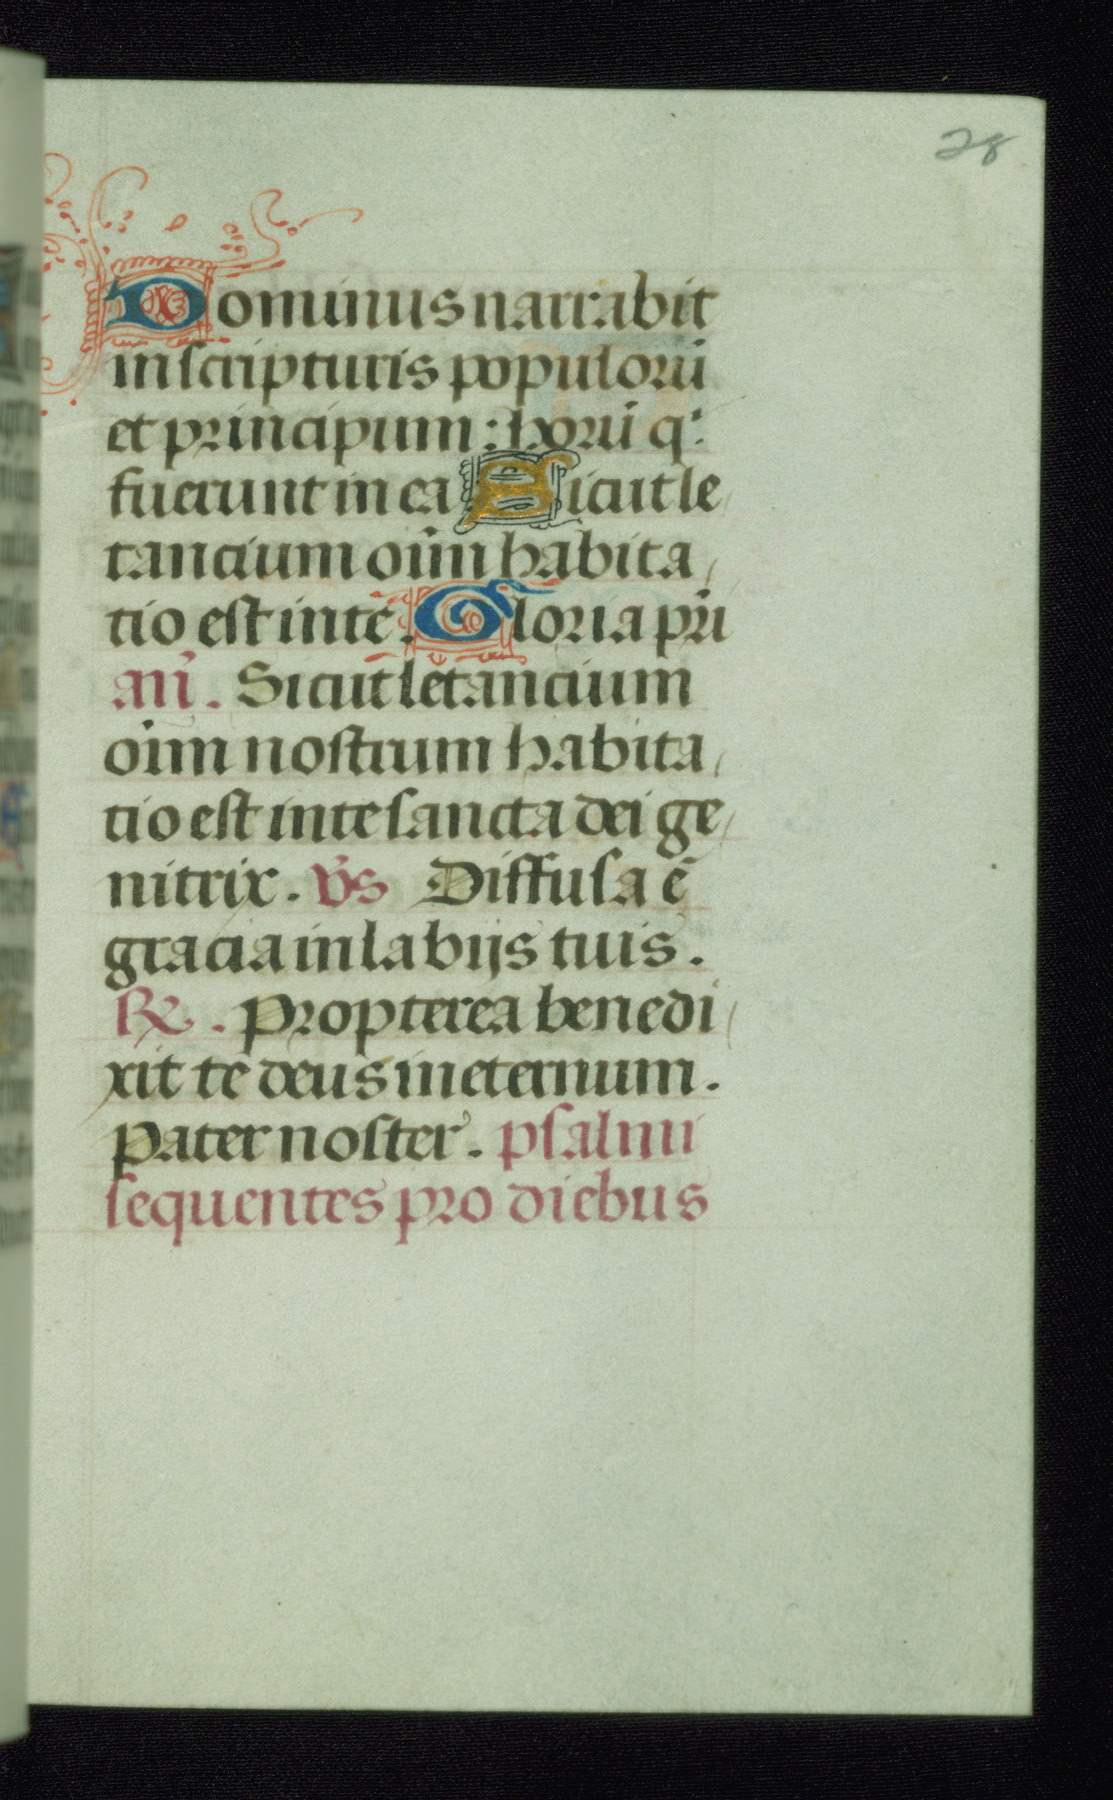 28
Dominus narrabit
in scripturis populorū
et principum : horū q̄ :
fuerunt in ea Sicut le
tancium oīm habita
tio est in te . Gloria pr̄i
añ . Sicut letancium
oīm nostrum habita
tio est in te sancta dei ge
nitrix . v̄s Diffusa ē
gracia in labijs tuis .
℟ . Propterea benedi
xit te deus in eternum .
Pater noster . psalmi
sequentes pro diebus